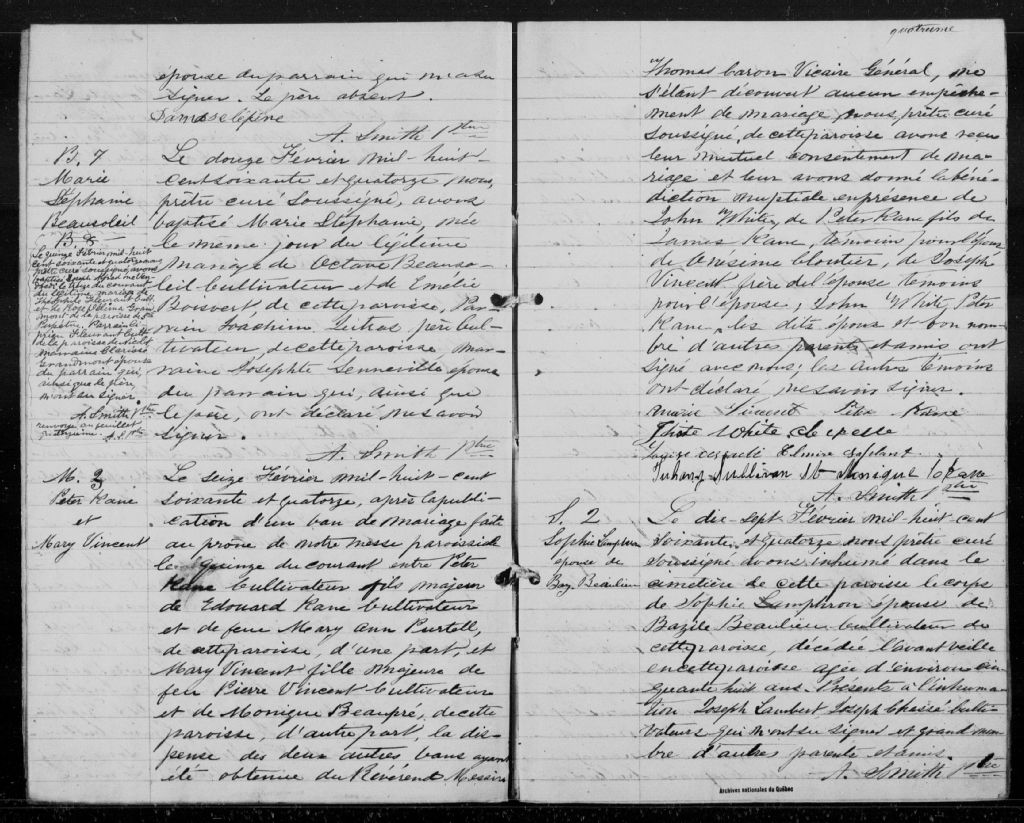 épouse du parrain qui n'a su
signer. Le père absent.
Damase
A. Smith Ptre
B. 7
Marie
Stéphanie
Beausoleil
Le douze Février mil-huit-
cent soixante et quatorze nous,
prêtre curé soussigné, avons
baptisé Marie Stéphanie, née
le même jour du légitime
mariage de Octave Beauso-
leil Cultivateur et de Emélie
Boisvert de cette paroisse, Par-
rain Joachim père Cul-
tivateur, de cette paroisse, mar-
raine Josephte Senneville épouse
du parrain qui, ainsi que
le père, ont déclaré ne savoir
signer.
A. Smith Ptre
B 8
Le quinze Février mil-huit
cent soixante et quatorze nous
prêtre curé soussigné, avons
baptisé Joseph Alfred né
le treize du courant
du légitime mariage de
Théophile Fleurant Cult.
et de Rose Grand
mont de la paroisse de St
Parrain
Fleurant Cult.
de la paroisse de Nicolet
marraine Clarisse
Grandmont épouse
du parrain qui,
ainsi que le père,
n'ont su signer
A. Smith Ptre
renvoyé au feuillet
quatrième. A.S. Ptre
M. 3
Peter Kane
et
Mary Vincent
Le seize Février mil-huit-cent
soixante et quatorze, après la publi-
cation d'un ban de mariage faite
au prône de notre messe paroissiale
le quinze du courant entre Peter
Kane Cultivateur fils majeur
de Edouard Kane Cultivateur
et de feue Mary Ann Purtell,
de cette paroisse, d'une part, et
Mary Vincent fille majeure de
feu Pierre Vincent Cultivateur
et de Monique Beaupré, de cette
paroisse, d'autre part, la dis-
pense des deux autres bans ayant
été obtenue du Révérend Messire
quatrième
Thomas Caron Vicaire Général, ne
s'étant découvert aucun empêche-
ment de mariage nous, prêtre curé
soussigné, de cette paroisse avons reçu
leur mutuel consentement de ma-
riage et leur avons donné la béné-
diction nuptiale en présence de
John White, de Peter Kane fils de
James Kane, témoin pour l'époux
de Onesime Cloutier, de Joseph
Vincent frère de l'épouse témoins
pour l'épouse, John White, Peter
Kane, les dits époux et bon nom-
bre d'autres parents et amis ont
signé avec nous; les autres témoins
ont déclaré ne savoir signer.
Marie Vincent Kane
White
Elmire
Sullivan St Monique
A. Smith Ptre
S. 2
Sophie Lamphron
épouse de
Baz. Beaulieu
Le dix-sept Février mil-huit-cent
soixante, et quatorze nous prêtre curé
soussigné avons inhumé dans le
cimetière de cette paroisse le corps
de Sophie Lamphron épouse de
Bazile Beaulieu Cultivateur de
cette paroisse, décédée l'avant veille
en cette paroisse agée d'environ cin
quante huit ans. Présents à l'inhuma-
tion Joseph Lambert, Joseph Chaissé culti-
vateurs qui n'ont su signer et grand nom-
bre d'autres parents et amis.
A. Smith Ptre
Archives nationales du Québec